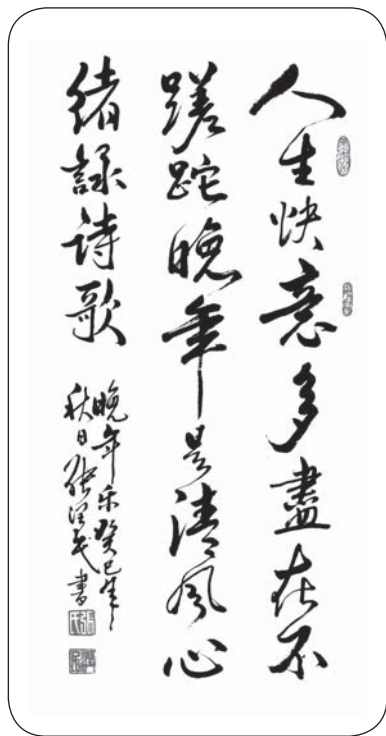 人生快意多盡在不
蹉跎晚年是清风心
緒诗歌
晚年乐癸巳年
秋日张書